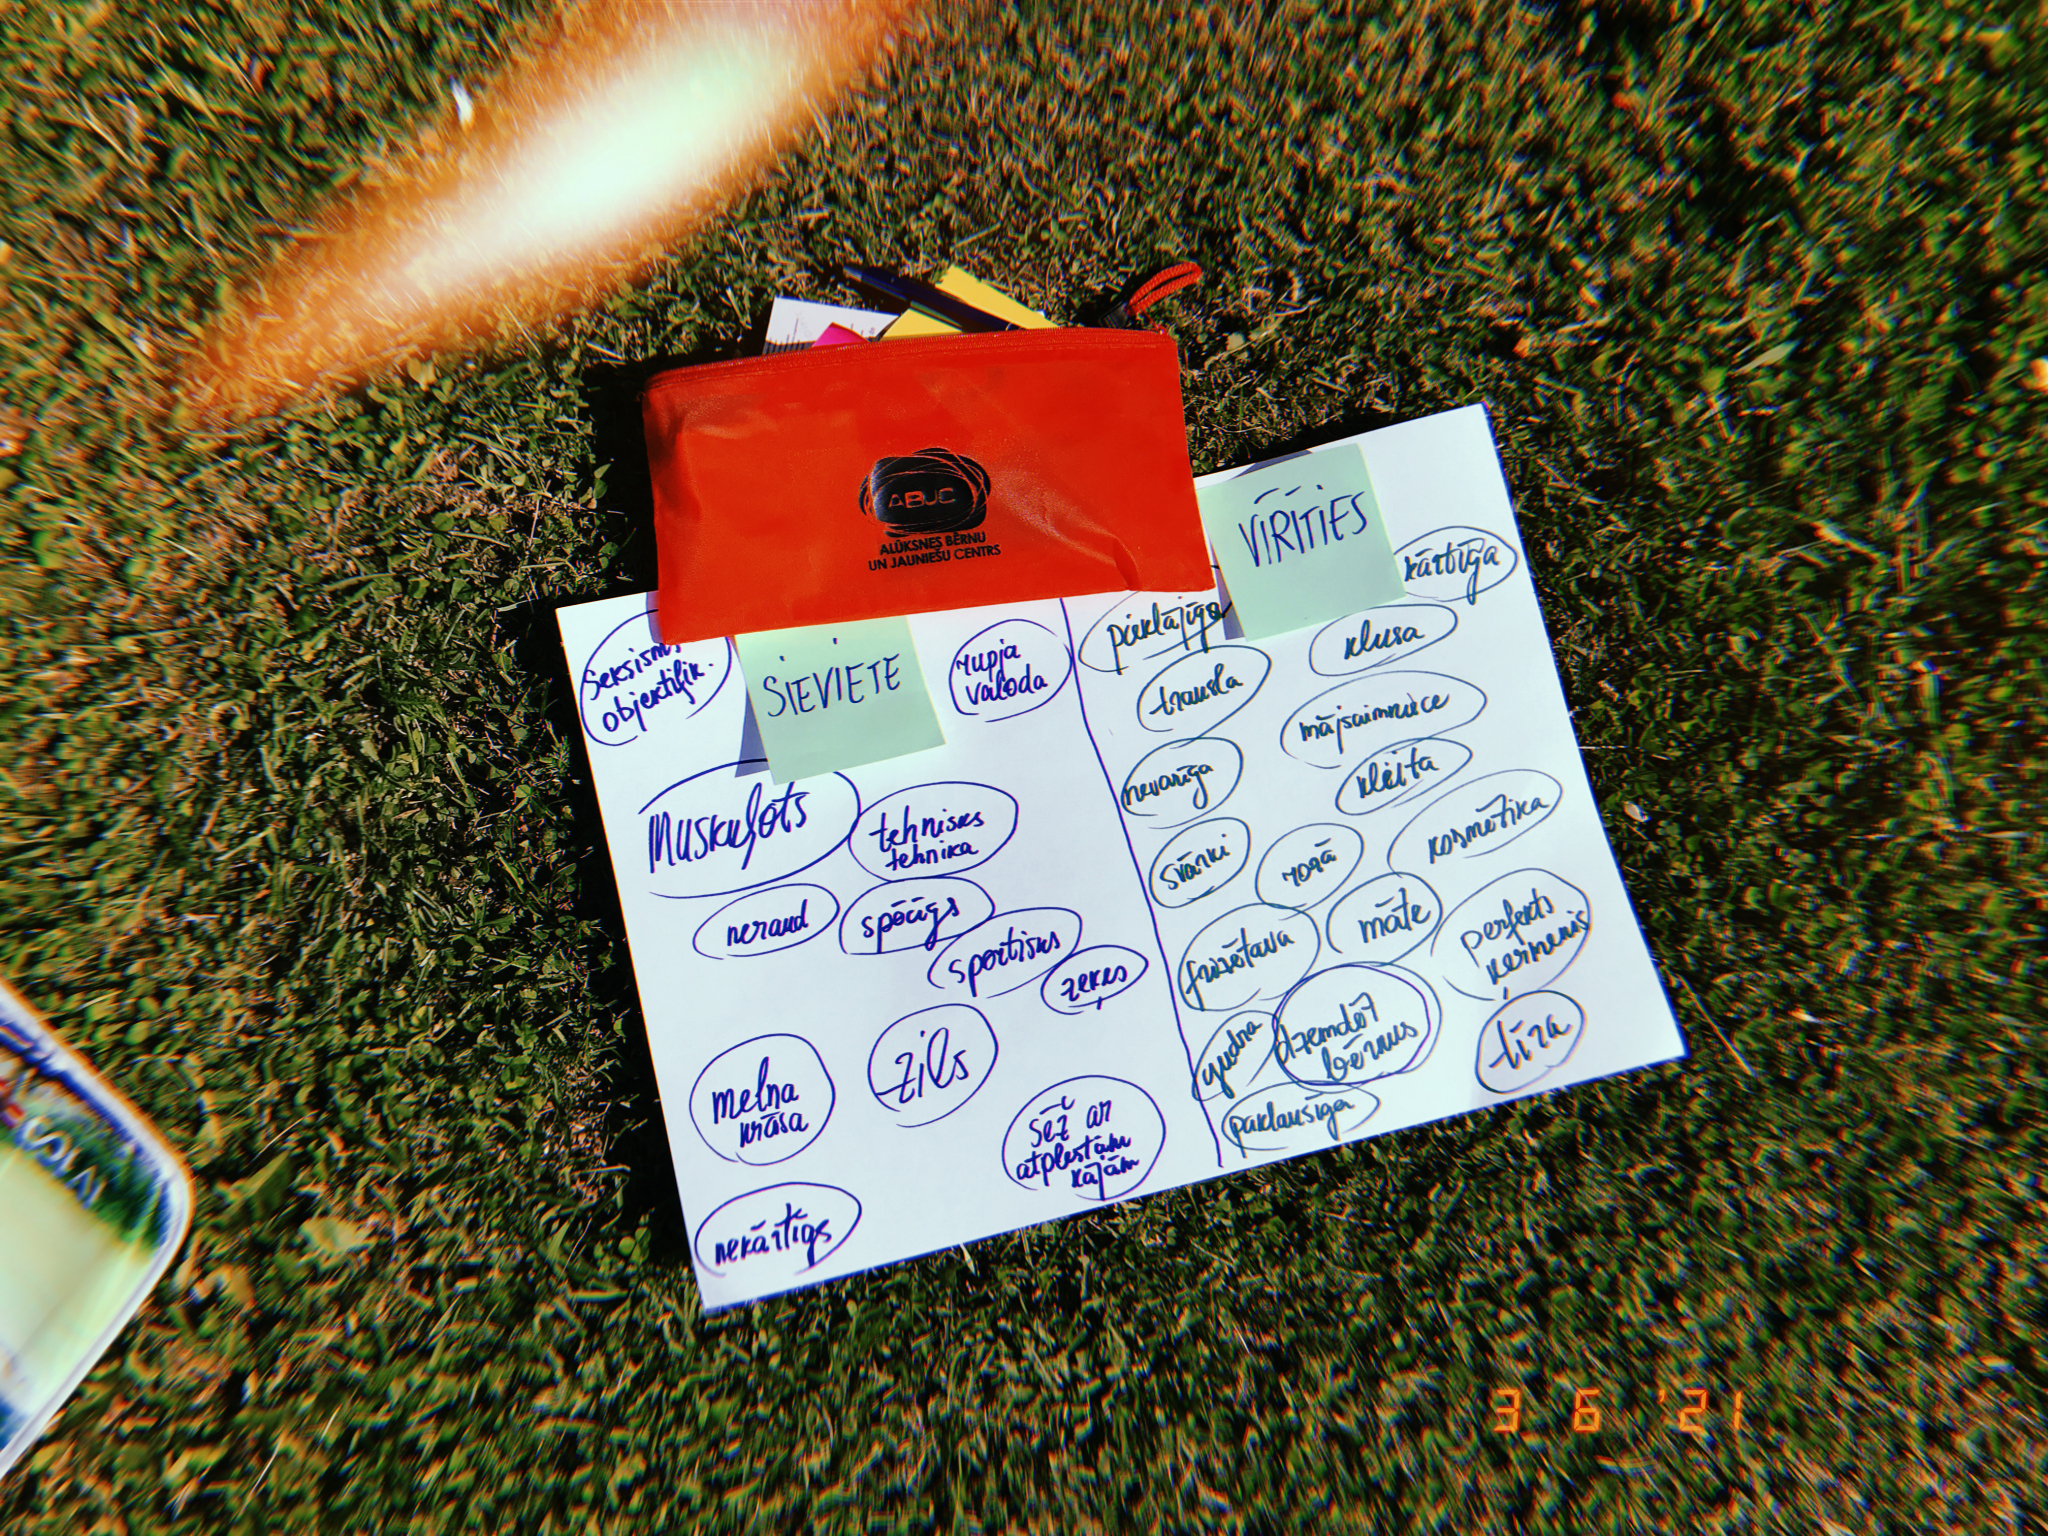 ABJC
ALŪKSNES BĒRNU
UN JAUNIEŠU CENTRS
SIEVIETE
seksisms
objektifik.
rupja
valoda
Muskuļots
tehnisks
tehnika
neraud
spēcīgs
sportisks
zeķes
melna
krāsa
zils
sēž ar
atplestām
kājām
nekārtīgs
VĪRITIES
kārtīga
pieklājīga
klusa
trausla
mājsaimniece
nevarīga
kleita
kosmētika
svārki
rozā
māte
perfekts
ķermenis
frizētava
gudra
dzemdēt
bērnus
tīra
paklausīga
3 6 '21